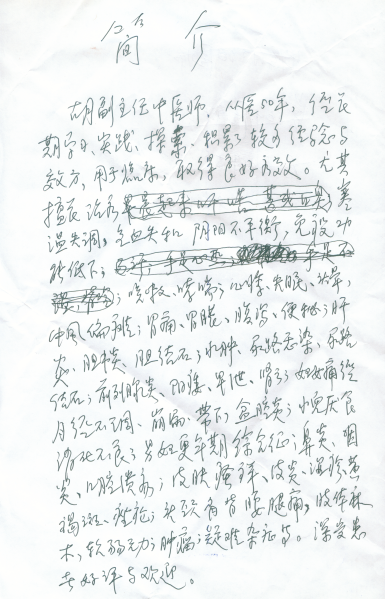 简 介
胡副主任中医师,从医50年,经长
期学习、实践、探索、积累较多经验与
效方,用于临床,取得良好疗效。尤其
擅长治疗 寒
温失调,气血失和,阴阳不平衡,免疫功
能低下;
咳嗽、哮喘;心悸、失眠、头晕,
中风偏瘫;胃痛、胃胀、腹泻、便秘;肝
炎、胆囊、胆结石;水肿、尿路感染、尿路
结石;前列腺炎、阳痿、早泄、肾亏;妇女痛经
月经不调、崩漏、带下,盆腔炎;小儿厌食
消化不良;男女更年期综合征;鼻炎、咽
炎、口腔溃疡;皮肤瘙痒、皮炎、湿疹黄
褐斑、痤疮;头颈肩背腰腿痛,肢体麻
木,软弱无力;肿瘤;疑难杂症等。深受患
者好评与欢迎。